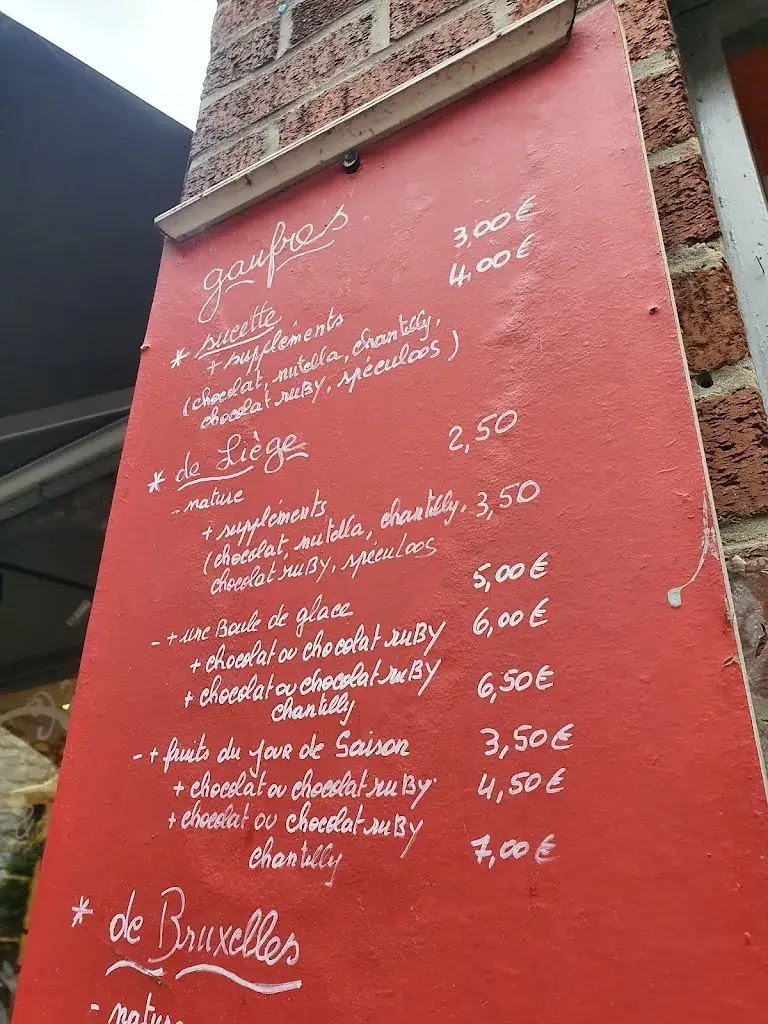 gaufres
* sucette 3,00€
+ suppléments 4,00€
(chocolat, nutella, chantilly,
chocolat ruBy, spéculoos)
* de Liège
- nature 2,50
+ suppléments
(chocolat, nutella, chantilly, 3,50
chocolat ruBy, spéculoos
- + une Boule de glace 5,00€
+ chocolat ou chocolat ruBy 6,00€
+ chocolat ou chocolat ruBy 6,50€
chantilly
- + fruits du jour de Saison 3,50€
+ chocolat ou chocolat ruBy 4,50€
+ chocolat ou chocolat ruBy
chantilly 7,00€
* de Bruxelles
- nature